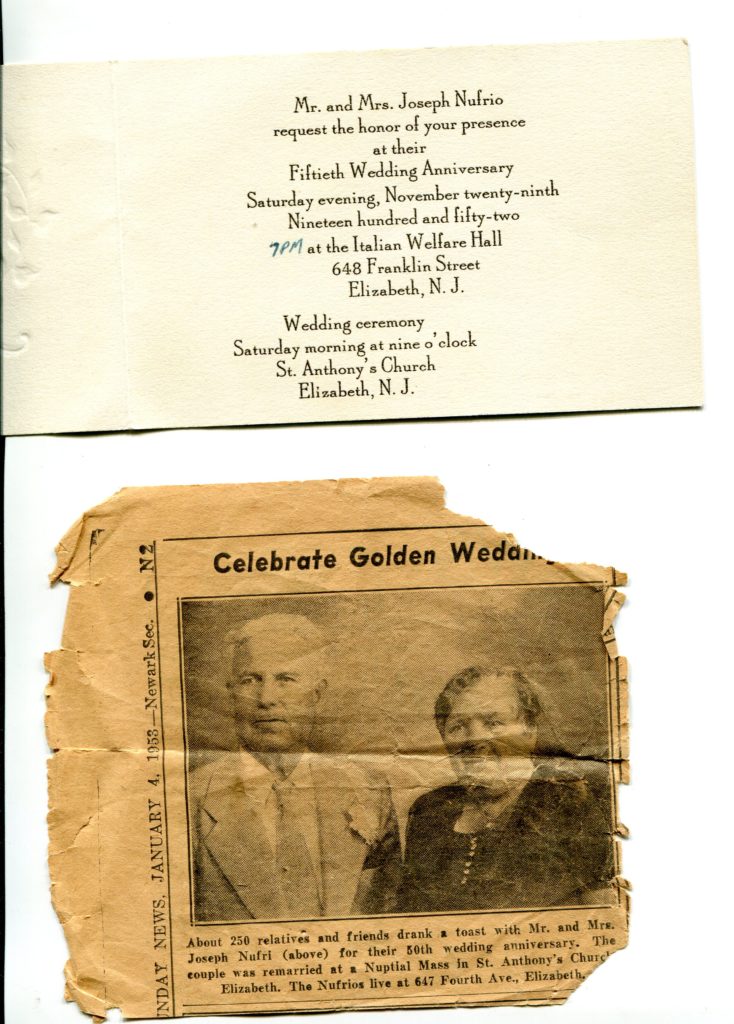 Mr. and Mrs. Joseph Nufrio
request the honor of your presence
at their
Fiftieth Wedding Anniversary
Saturday evening, November twenty-ninth
Nineteen hundred and fifty-two
7PM at the Italian Welfare Hall
648 Franklin Street
Elizabeth, N. J.
Wedding ceremony
Saturday morning at nine o'clock
St. Anthony's Church
Elizabeth, N. J.
NDAY NEWS, JANUARY 4, 1953—Newark Sec. ● N2
Celebrate Golden Wedding
About 250 relatives and friends drank a toast with Mr. and Mrs.
Joseph Nufri (above) for their 50th wedding anniversary. The
couple was remarried at a Nuptial Mass in St. Anthony's Church
Elizabeth. The Nufrios live at 647 Fourth Ave., Elizabeth.